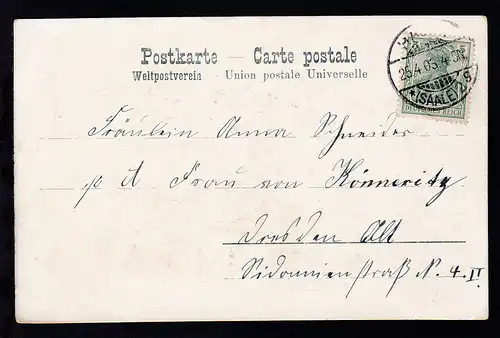 Postkarte — Carte postale
Weltpostverein - Union postale Universelle
26.4.03.4-5N.
*(SAALE)2g
DEUTSCHES REICH
Fräulein Anna Schneider
p A Frau von Könneritz
Dresden Alt
Sidonienstraß N. 4. II